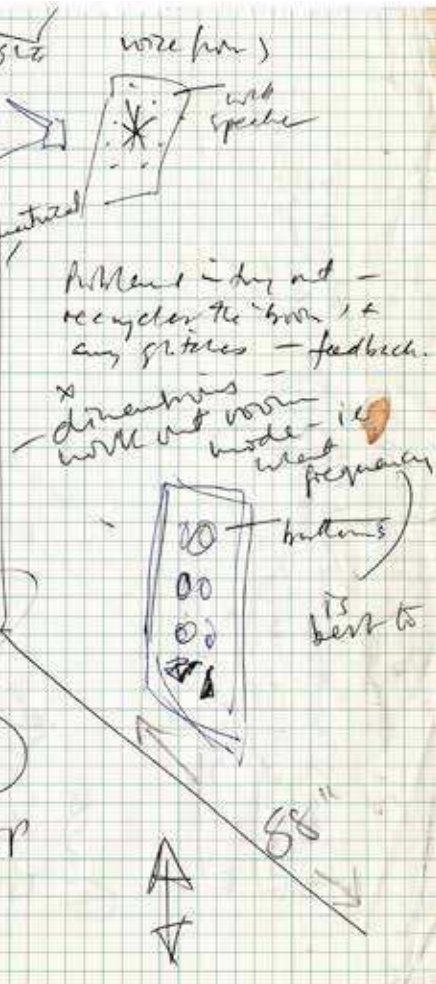 voice from)
speaker
Problems in dry out –
recycles the 'boom', &
any glitches – feedback.
x
– dimensions –
work out room
mode – ie
what
frequency
buttons
is
best to
88"
P